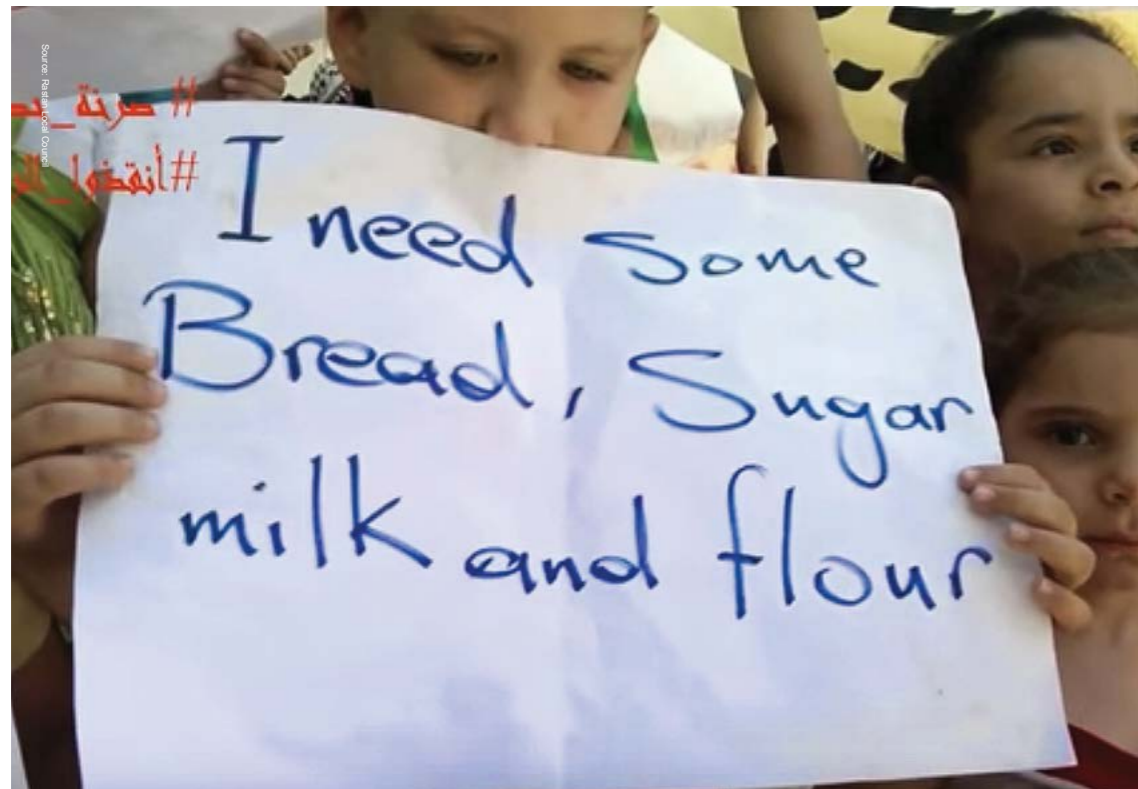 Source: Rastan Local Council
#أنقذوا
I need some
Bread, Sugar
milk and flour